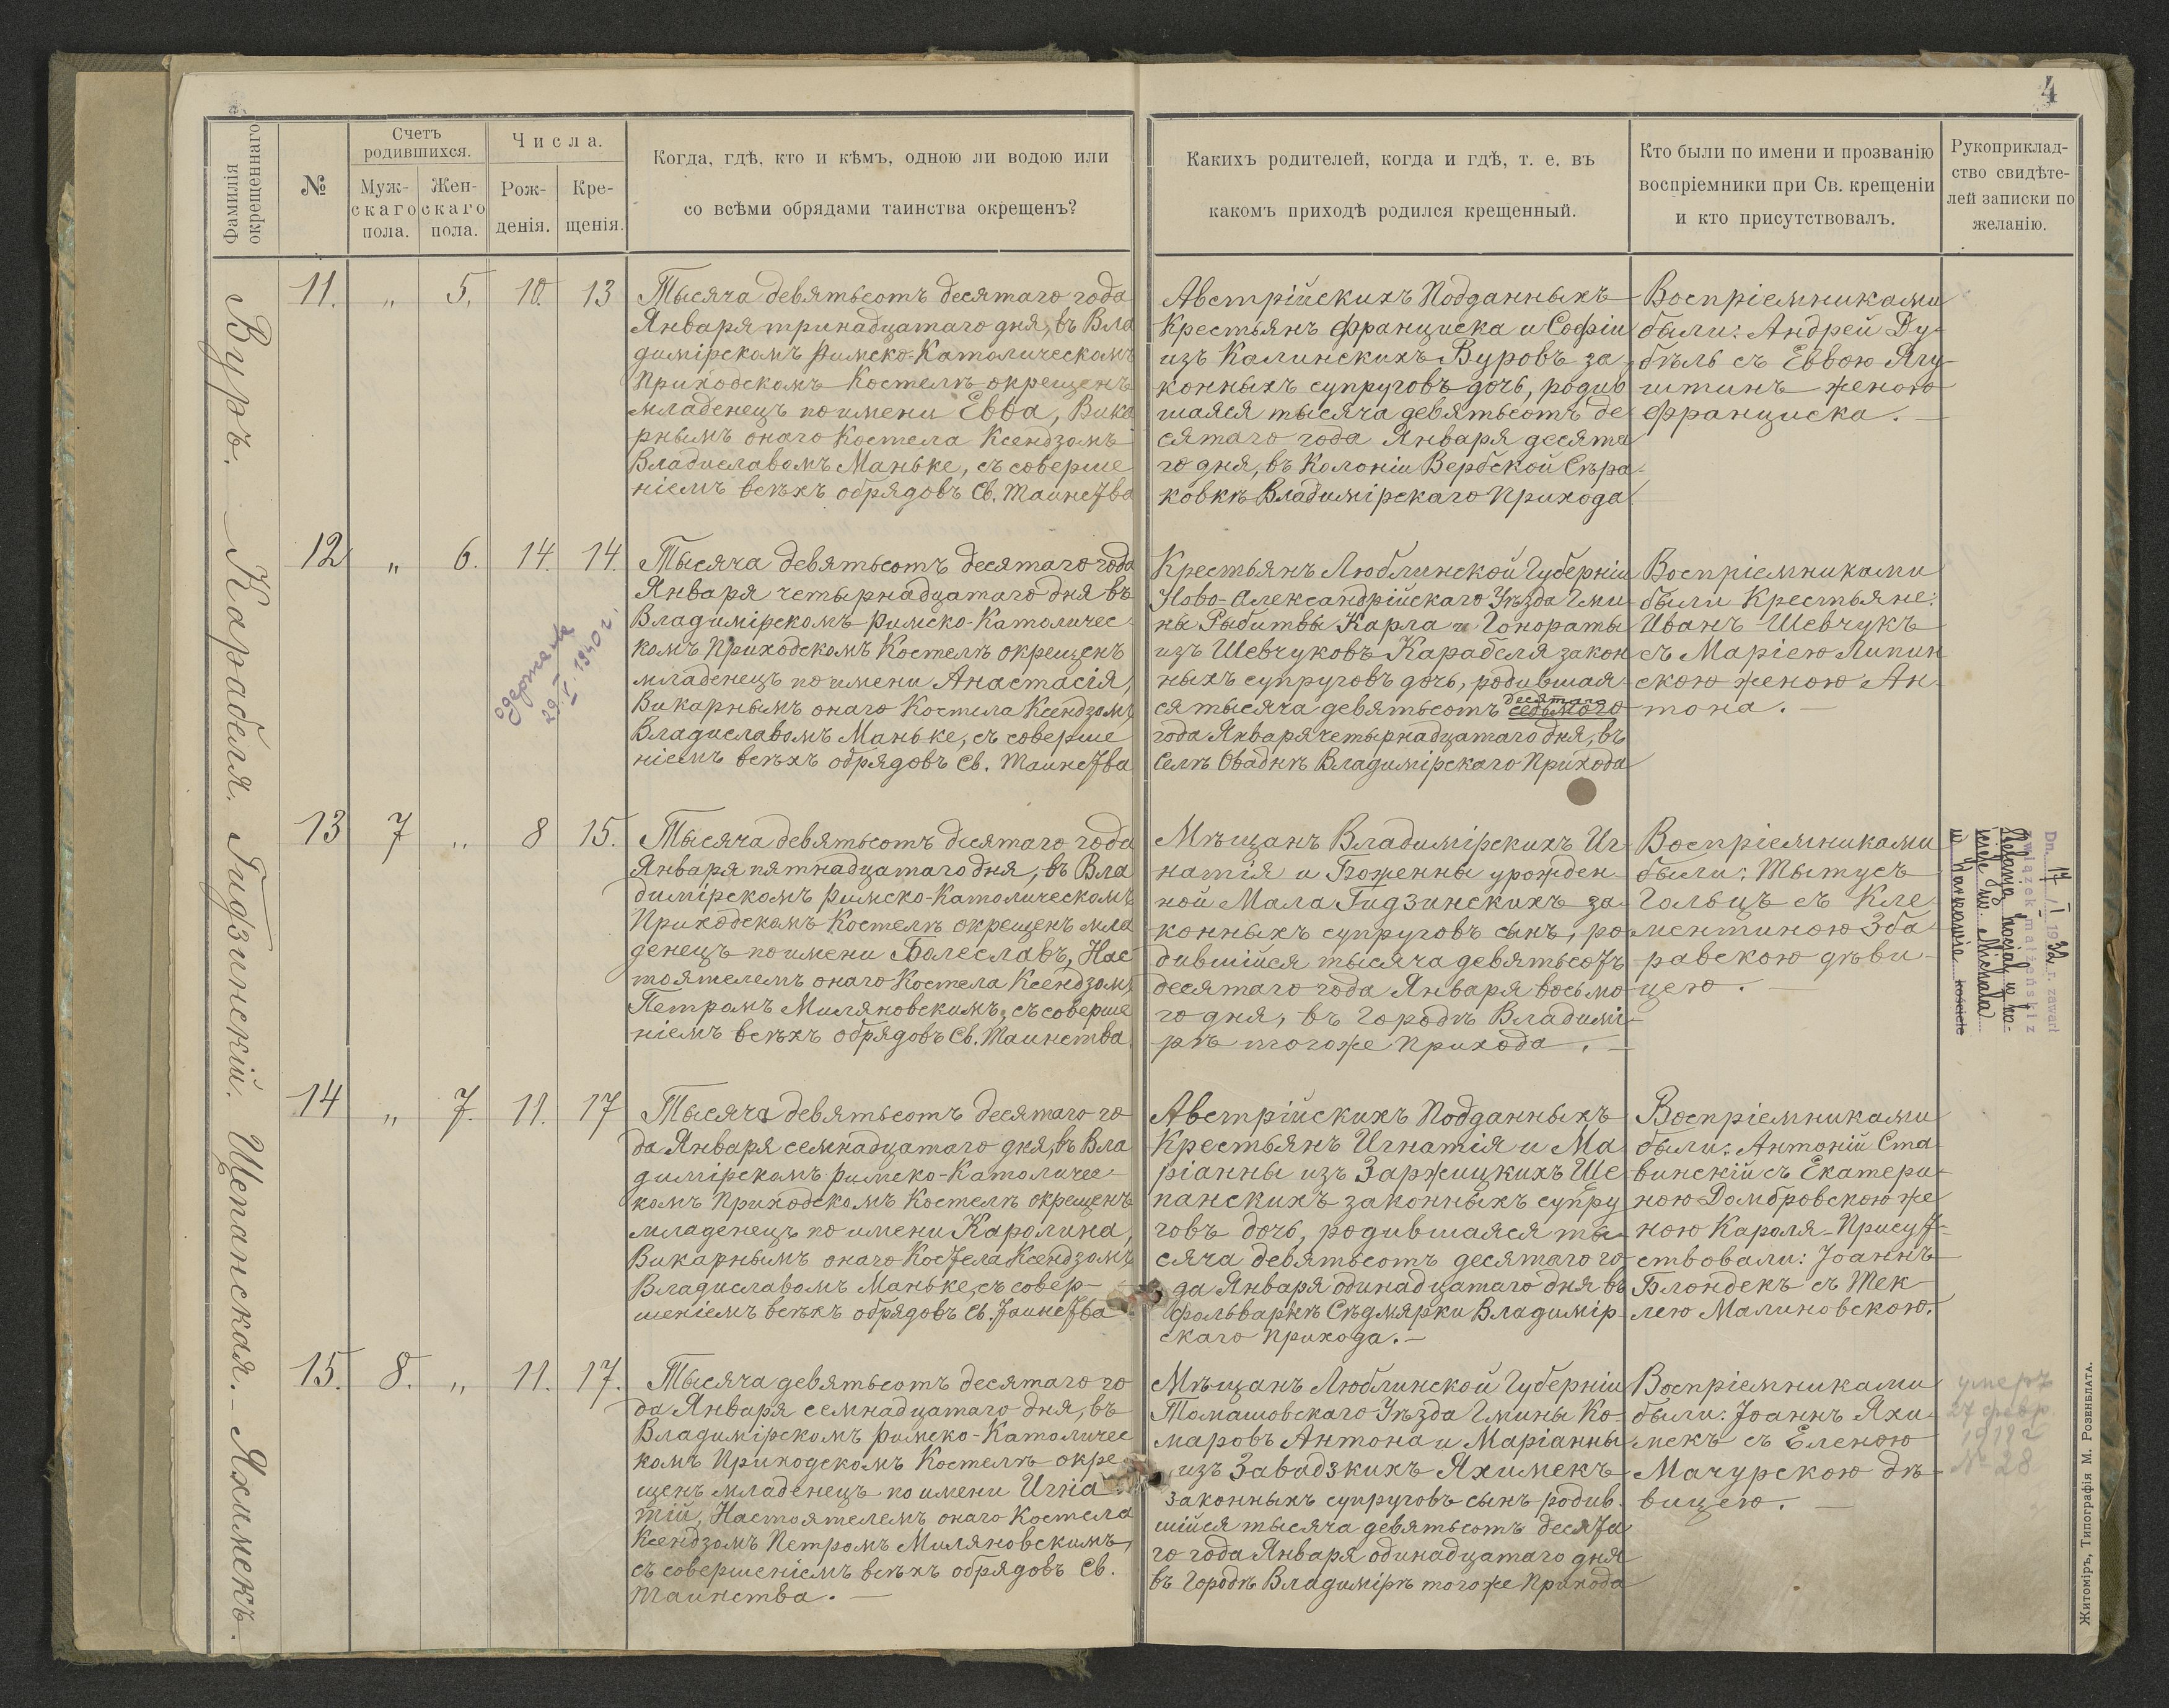 4
Фамилія
окрещеннаго
№
Счетъ
родившихся.
Муж-
скаго
пола.
Жен-
скаго
пола.
Числа.
Рож-
денія.
Кре-
щенія.
Когда, гдѣ, кто и кѣмъ, одною ли водою или
со всѣми обрядами таинства окрещенъ?
Какихъ родителей, когда и гдѣ, т. е. въ
какомъ приходѣ родился крещенный.
Кто были по имени и прозванію
воспріемники при Св. крещеніи
и кто присутствовалъ.
Рукоприклад-
ство свидѣте-
лей записки по
желанію.
Вуръ. Карабеля. Гидзинскій. Щепанская. - Яхимекъ.
11. " 5. 10. 13
Тысяча девятьсотъ десятаго года
Января тринадцатаго дня, въ Вла
димірскомъ Римско-Католическомъ
Приходскомъ Костелѣ окрещенъ
младенецъ по имени Евва, Вика
рнымъ онаго Костела Ксендзомъ
Владиславомъ Маньке, съ соверше
ніемъ всѣхъ обрядовъ Св. Таинства
Австрійскихъ Подданныхъ
Крестьянъ Франциска и Софіи
изъ Калинскихъ Вуровъ за
конныхъ супруговъ дочь, родив
шаяся тысяча девятьсотъ де
сятаго года Января десята
го дня, въ Колоніи Вербской Сѣра-
ковкѣ Владимірскаго Прихода
Воспріемниками
были: Андрей Ду-
бѣль съ Еввою Ягу
штинъ женою
Франциска. —
12 " 6. 14. 14.
Тысяча девятьсотъ десятаго года
Января четырнадцатаго дня въ
Владимірскомъ Римско-Католичес-
комъ Приходскомъ Костелѣ окрещенъ
младенецъ по имени Анастасія,
Викарнымъ онаго Костела Ксендзомъ
Владиславомъ Маньке, съ соверше
ніемъ всѣхъ обрядовъ Св. Таинства
29. I. 1940 г.
Крестьянъ Люблинской Губерніи
Ново-Александрійскаго Уѣзда Гми
ны Рыбитвы Карла и Гонораты
изъ Шевчуковъ Карабеля закон
ныхъ супруговъ дочь, родившая-
десята
ся тысяча девятьсотъ седьмого
года Января четырнадцатаго дня, въ
Селѣ Оваднѣ Владимірскаго Прихода
Воспріемниками
были Крестьяне:
Иванъ Шевчукъ
съ Маріею Липин
скою женою Ан
тона. —
13 7 " 8 15.
Тысяча девятьсотъ десятаго года
Января пятнадцатаго дня, въ Вла
димірскомъ Римско-Католическомъ
Приходскомъ Костелѣ окрещенъ мла
денецъ по имени Болеславъ, Нас
тоятелемъ онаго Костела Ксендзомъ
Петромъ Миляновскимъ, съ соверше
ніемъ всѣхъ обрядовъ Св. Таинства
Мѣщанъ Владимірскихъ Иг-
натія и Боженны урожден-
ной Мала Гидзинскихъ за-
конныхъ супруговъ сынъ, ро
дившійся тысяча девятьсотъ
десятаго года Января восьмо
го дня, въ Городѣ Владимі-
рѣ тогоже Прихода. —
Воспріемниками
были: Тытусъ
Гольцъ съ Кле
ментиною Зба
равскою дѣви-
цею. —
Dn. 17 / I 1932 r. zawarł
związek małżeński z
Stefanją
ściele św. Michała
w Warszawie kościele
14 " 7. 11. 17
Тысяча девятьсотъ десятаго го
да Января семнадцатаго дня, въ Вла
димірскомъ Римско-Католичес-
комъ Приходскомъ Костелѣ окрещенъ
младенецъ по имени Каролина,
Викарнымъ онаго Костела Ксендзомъ
Владиславомъ Маньке, съ совер-
шеніемъ всѣхъ обрядовъ Св. Таинства
Австрійскихъ Подданныхъ
Крестьянъ Игнатія и Ма
ріанны изъ Заржицкихъ Ще
панскихъ законныхъ супру
говъ дочь, родившаяся ты
сяча девятьсотъ десятаго го
да Января одинадцатаго дня въ
Фольваркѣ Сѣдмярки Владимір-
скаго Прихода. —
Воспріемниками
были: Антоній Ста
винскій съ Екатери
ною Домбровскою же
ною Кароля - Присут-
ствовали: Іоаннъ
Блондекъ съ Тек
лею Малиновскою.
15. 8. " 11. 17.
Тысяча девятьсотъ десятаго го
да Января семнадцатаго дня, въ
Владимірскомъ Римско-Католичес
комъ Приходскомъ Костелѣ окре
щенъ младенецъ по имени Игна
тій, Настоятелемъ онаго Костела
Ксендзомъ Петромъ Миляновскимъ,
съ совершеніемъ всѣхъ обрядовъ Св.
Таинства. —
Мѣщанъ Люблинской Губерніи
Томашовскаго Уѣзда Гмины Ко-
маровъ Антона и Маріанны
изъ Завадзкихъ Яхимекъ
законныхъ супруговъ сынъ родив-
шійся тысяча девятьсотъ десята
го года Января одинадцатаго дня
въ Городѣ Владимірѣ тогоже Прихода
Воспріемниками
были: Іоаннъ Яхи
мекъ съ Еленою
Мачурскою дѣ
вицею. —
умеръ
27 февр
№ 28
Житоміръ, Типографія М. Розенблата.